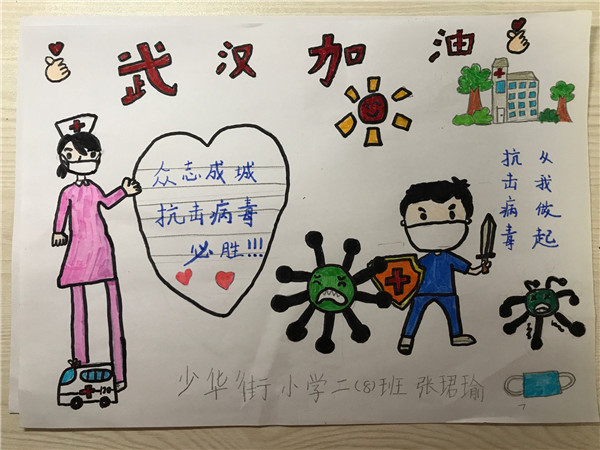 武汉加油
众志成城
抗击病毒
必胜!!!
从我做起
抗击病毒
少华街小学二(8)班 张珺瑜
120